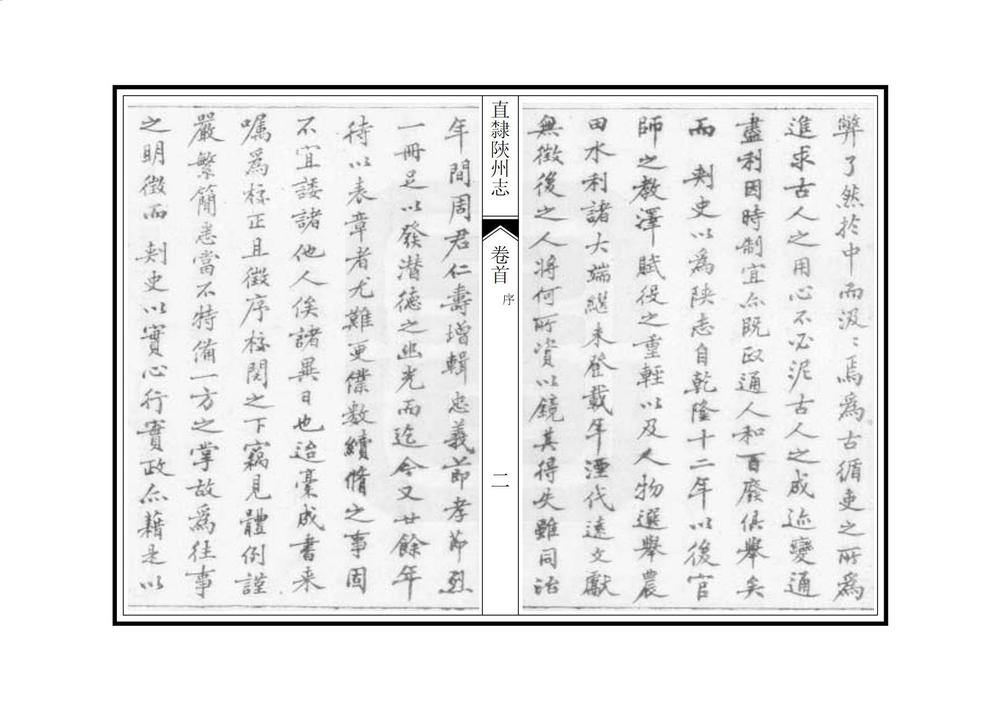 弊了然於中而汲〻焉爲古循吏之所爲
進求古人之用心不必泥古人之成迹變通
盡利因時制宜亦既政通人和百廢俱舉矣
而 刺史以爲陝志自乾隆十二年以後官
師之教澤賦役之重輕以及人物選舉農
田水利諸大端繼未登載年湮代遠文獻
無徵後之人將何所資以鏡其得失雖同治
直隸陝州志
卷首
序
二
年間周君仁壽增輯忠義節孝節烈
一冊足以發潛德之幽光而迄今又廿餘年
待以表章者尤難更僕數續脩之事固
不宜諉諸他人俟諸異日也迨稾成書来
嘱爲校正且徵序校閱之下竊見體例謹
嚴繁簡悉當不特備一方之掌故爲往事
之明徵而 刺史以實心行實政亦藉是以